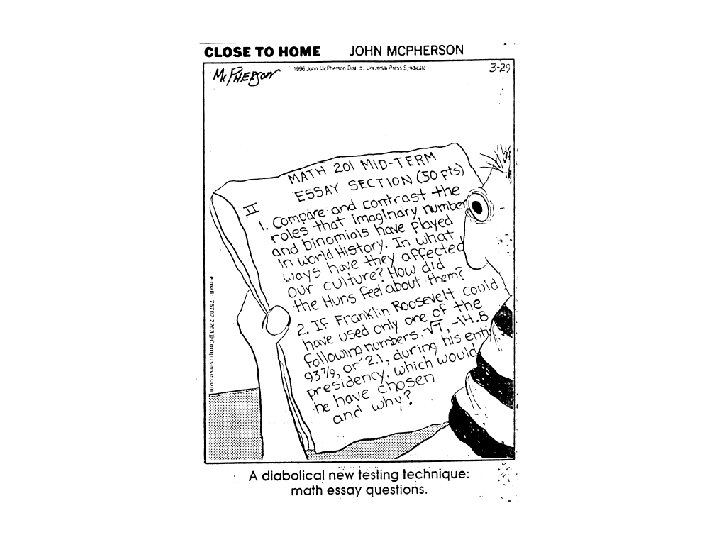 CLOSE TO HOME JOHN MCPHERSON
McPHERSON 3-29
MATH 201 MID-TERM
ESSAY SECTION (50 pts)
II
1. Compare and contrast the
roles that imaginary number
and binomials have played
in world History. In what
ways have they affected
our culture? How did
the Huns feel about them?
2. If Franklin Roosevelt could
have used only one of the
following numbers, √7, -14.6
93 7/8, or 2.1, during his enti
presidency, which would
he have chosen
and why?
A diabolical new testing technique:
math essay questions.